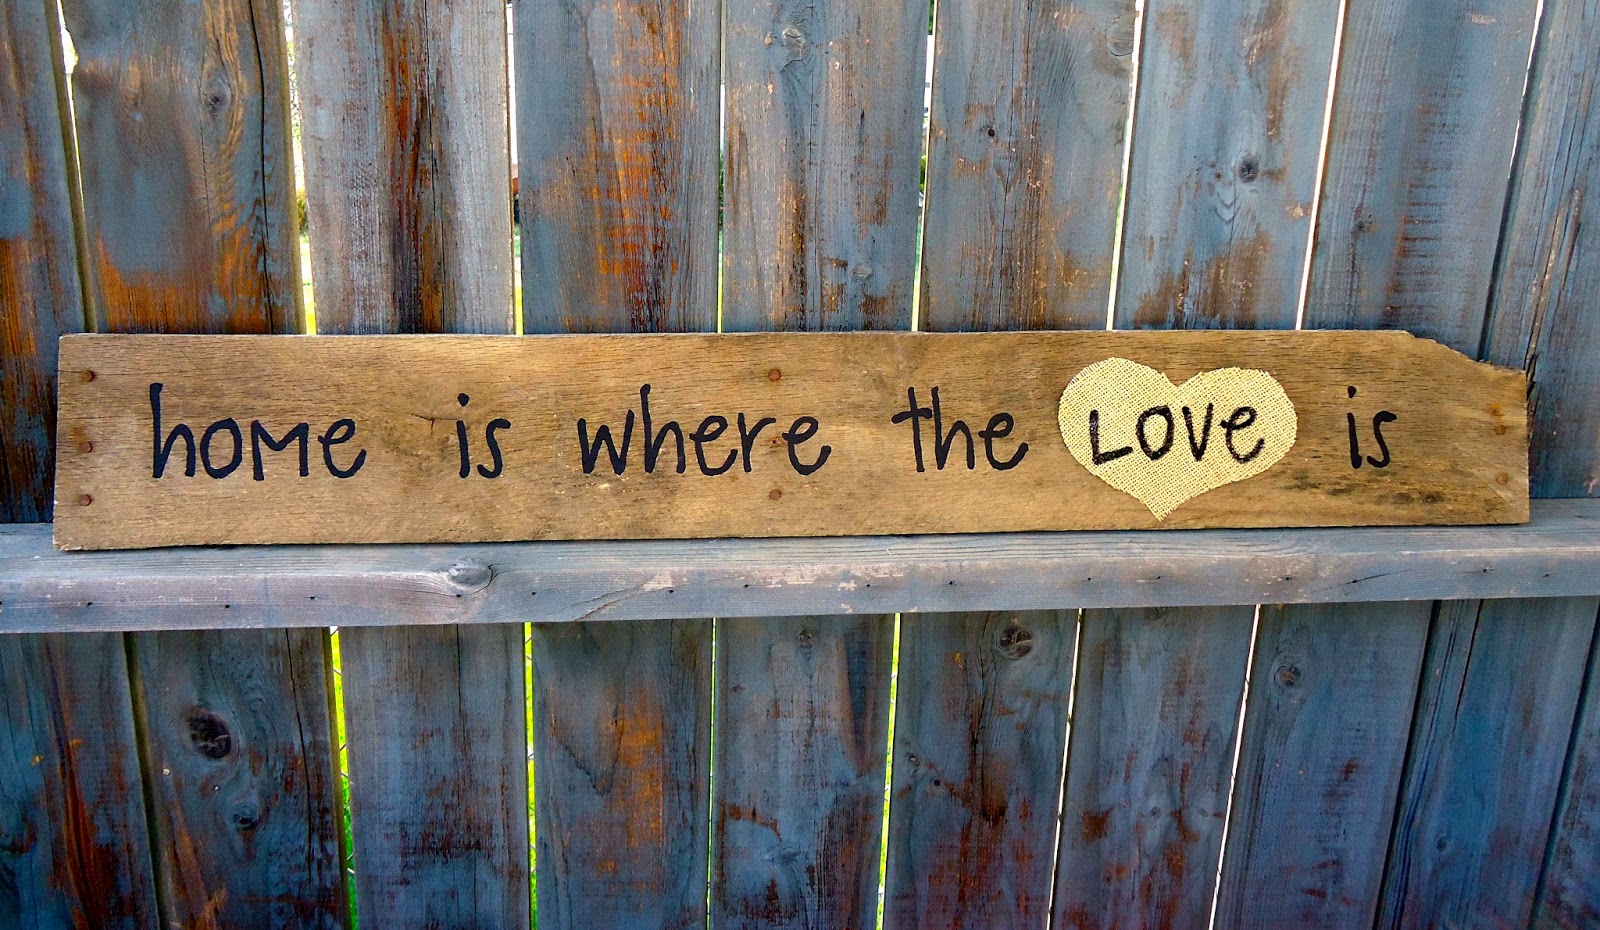 home is where the LOVe is